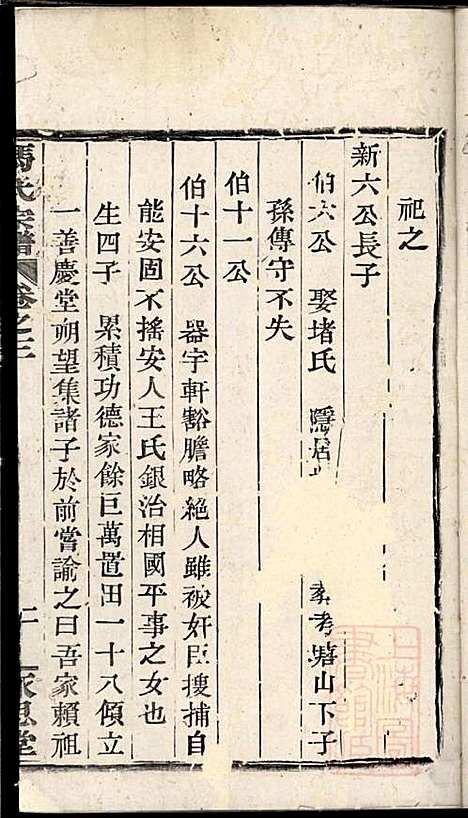 祀之
新六公長子
伯六公 娶堵氏 隱居 考塘山下子
孫傳守不失
伯十一公
伯十六公 器宇軒豁膽略絕人雖被奸臣搜捕自
能安固不搖安人王氏銀治相國平事之女也
生四子 累積功德家餘巨萬置田一十八傾立
一善慶堂朔望集諸子於前嘗諭之曰吾家賴祖
馮氏宗譜 卷之三 永思堂